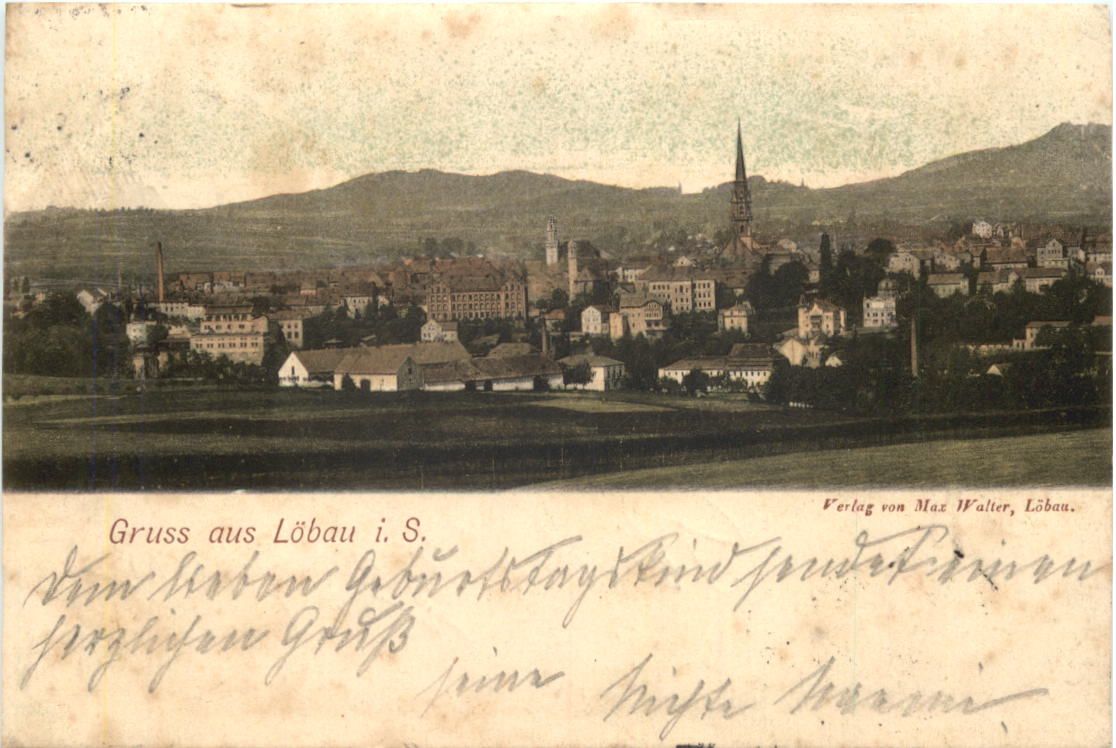 Verlag von Max Walter, Löbau.
Gruss aus Löbau i. S.
Dem lieben Geburtstagskind sendet einen
herzlichen Gruß
seine Nichte